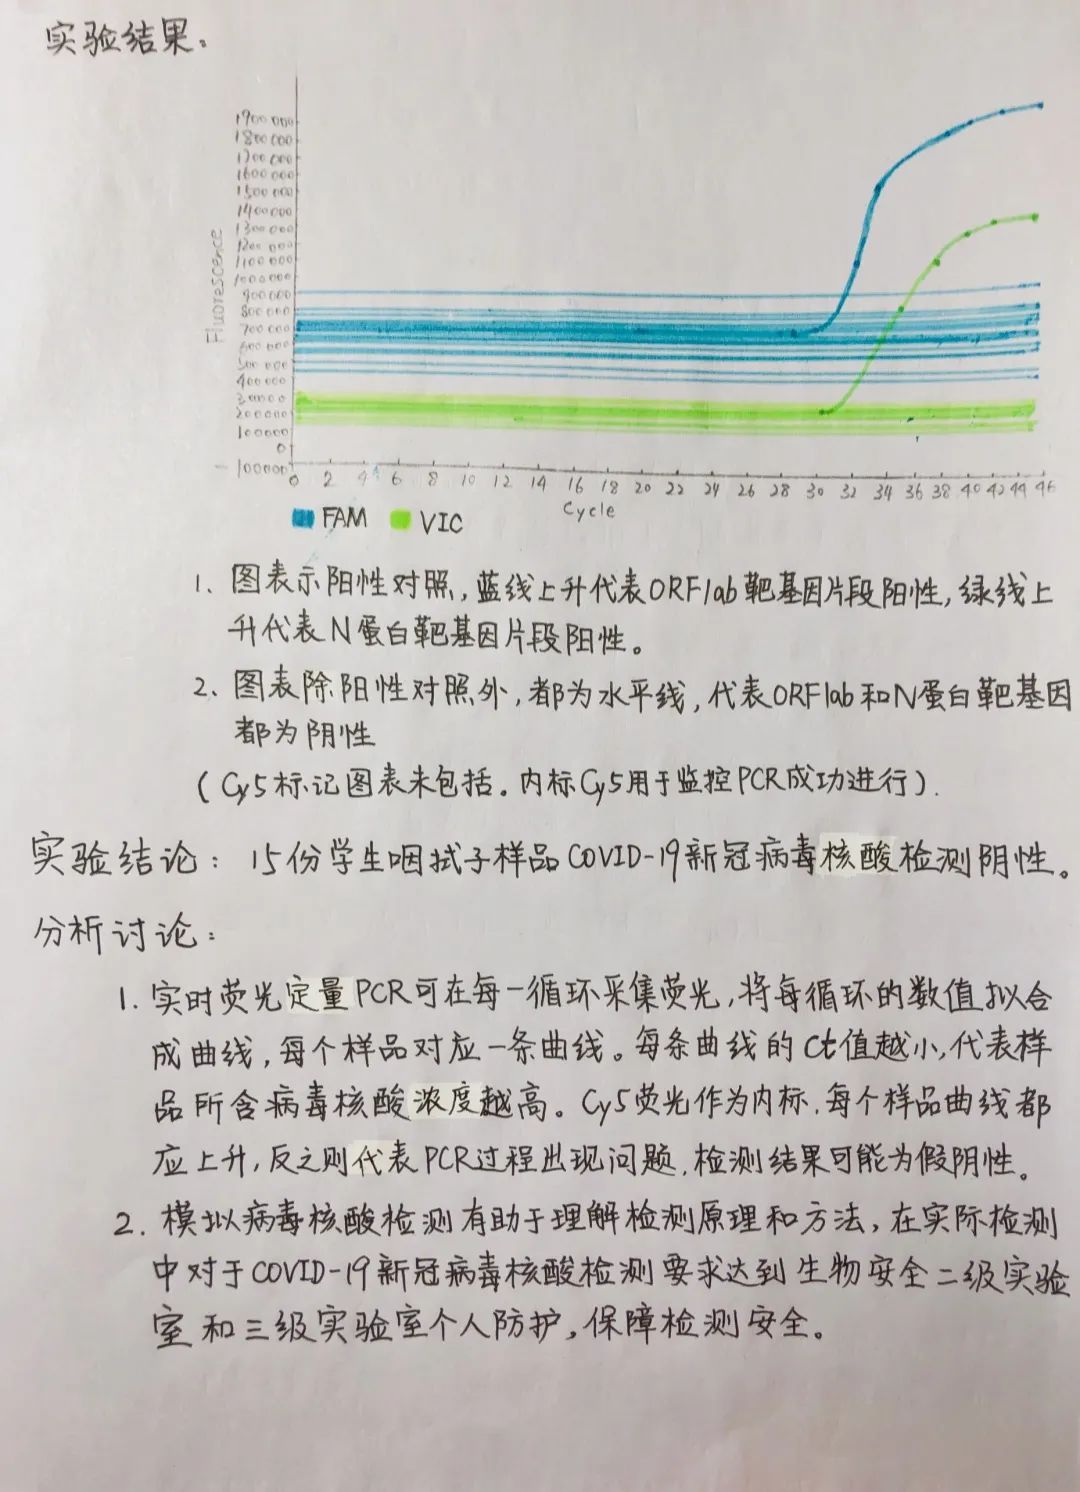 实验结果:
1900000
1800000
1700000
1600000
1500000
1400000
1300000
1200000
1100000
1000000
900000
800000
700000
600000
500000
400000
300000
200000
100000
0
-100000
Fluorescence
0 2 4 6 8 10 12 14 16 18 20 22 24 26 28 30 32 34 36 38 40 42 44 46
Cycle
FAM VIC
1. 图表示阳性对照,蓝线上升代表ORF1ab靶基因片段阳性,绿线上
升代表N蛋白靶基因片段阳性。
2. 图表除阳性对照外,都为水平线,代表ORF1ab和N蛋白靶基因
都为阴性
(Cy5标记图表未包括。内标Cy5用于监控PCR成功进行).
实验结论: 15份学生咽拭子样品COVID-19新冠病毒核酸检测阴性。
分析讨论:
1. 实时荧光定量PCR可在每一循环采集荧光,将每循环的数值拟合
成曲线,每个样品对应一条曲线。每条曲线的Ct值越小,代表样
品所含病毒核酸浓度越高。Cy5荧光作为内标,每个样品曲线都
应上升,反之则代表PCR过程出现问题,检测结果可能为假阴性。
2. 模拟病毒核酸检测有助于理解检测原理和方法,在实际检测
中对于COVID-19新冠病毒核酸检测要求达到生物安全二级实验
室和三级实验室个人防护,保障检测安全。